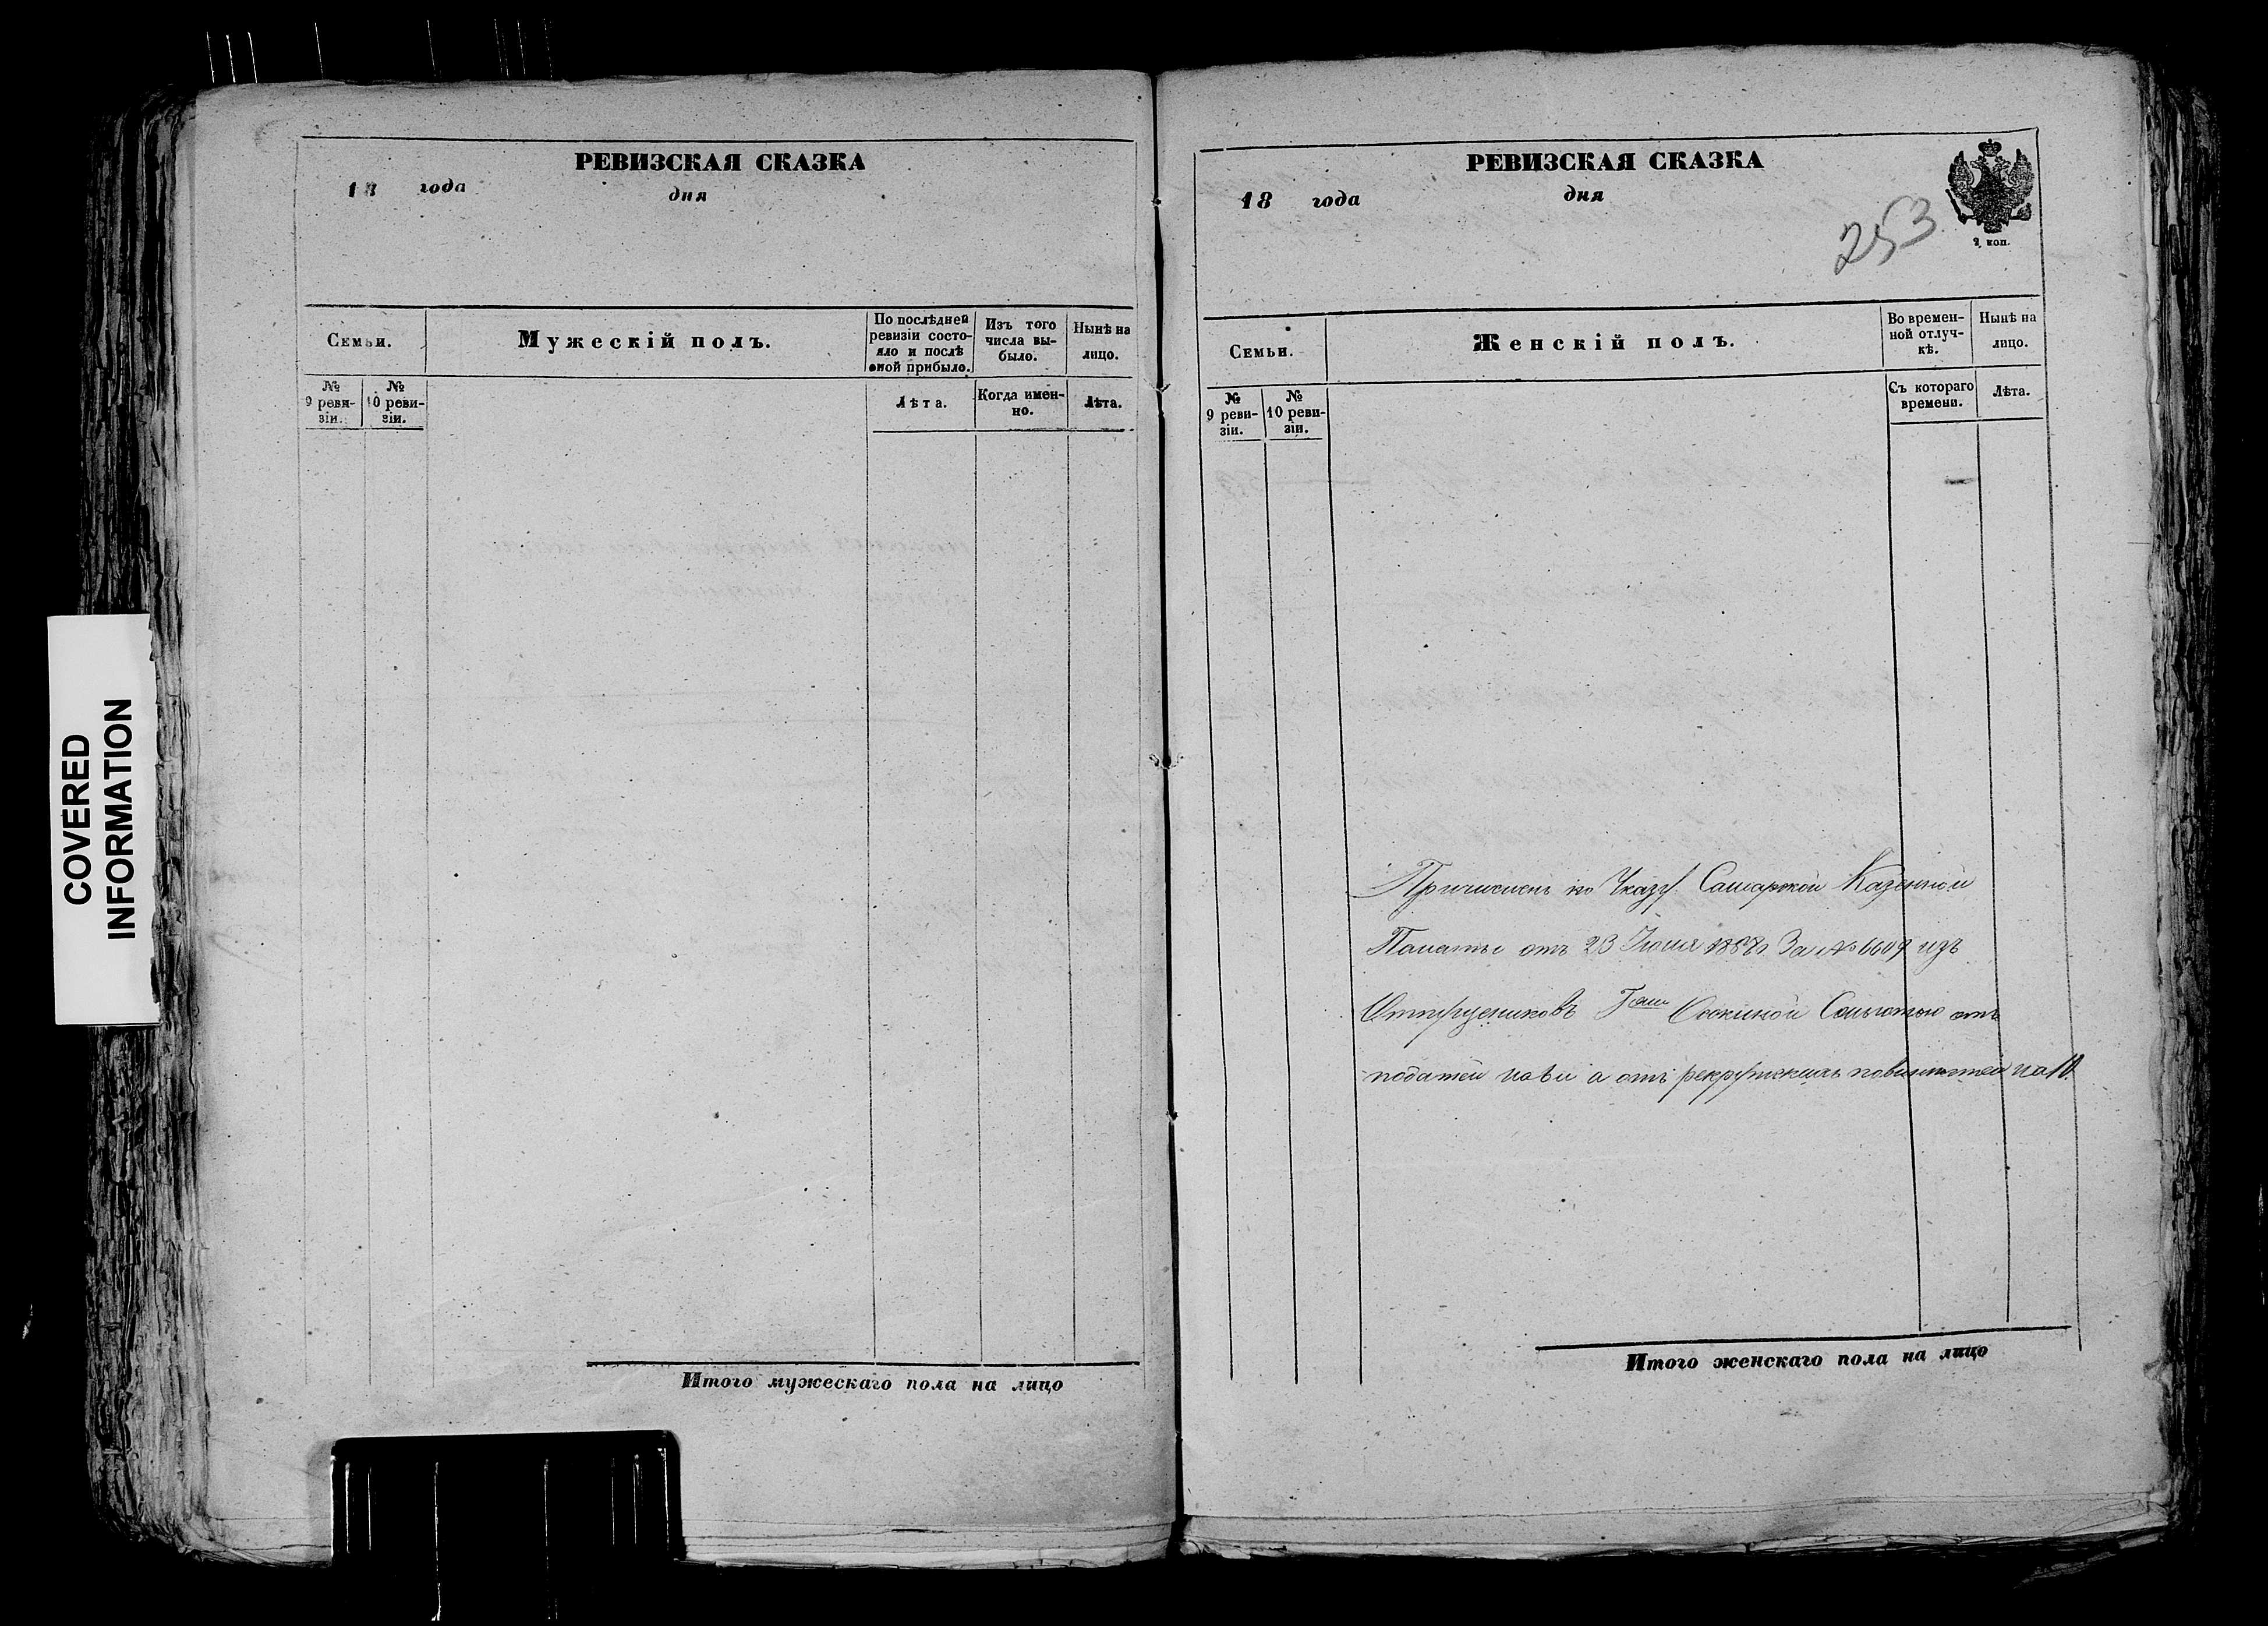 РЕВИЗСКАЯ СКАЗКА
18 года дня
Семьи.
Мужескій полъ.
По послѣдней ревизіи состояло и послѣ оной прибыло.
Изъ того числа выбыло.
Нынѣ на лицо.
№ 9 ревизіи.
№ 10 ревизіи.
Лѣта.
Когда именно.
Лѣта.
Итого мужескаго пола на лицо
РЕВИЗСКАЯ СКАЗКА
18 года дня
253
2 коп.
Семьи.
Женскій полъ.
Во временной отлучкѣ.
Нынѣ на лицо.
№ 9 ревизіи.
№ 10 ревизіи.
Съ котораго времени.
Лѣта.
Причисленъ по Указу Самарской Казенной
Палаты отъ 23 Іюля 1858 За № 6609 изъ
податей на а отъ рекрутскихъ повинностей на
Итого женскаго пола на лицо
COVERED
INFORMATION